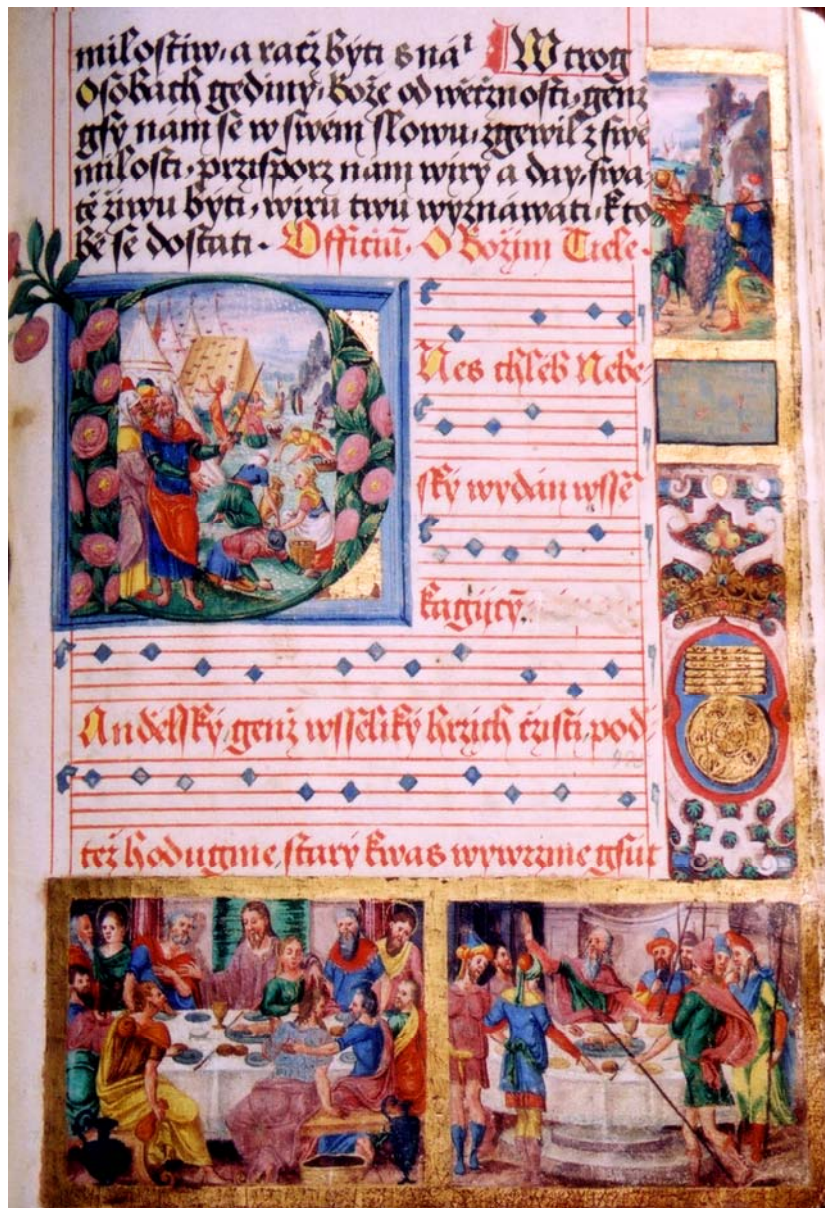 miloſtiw, a racž býti s náˡ W trog
Oſobách gediný, Bože od wěčznoſti, genž
gſy nám ſe w ſwém ſlowu, zgewil z ſwé
miloſti, przिſporz nám wiry a day, ſwa,
tě žiwu býti, wiru twu wyznáwati, k to
bě ſe doſtati. Officiū, O Božjm Tiele.
Nes chléb Nebe,
ſký wydán wſſē
kagijcÿ.
Andělſký, genž wſſeliký hrzich cžiſti, pod,
též hodugme, ſtarý kwas wywrzme gſut